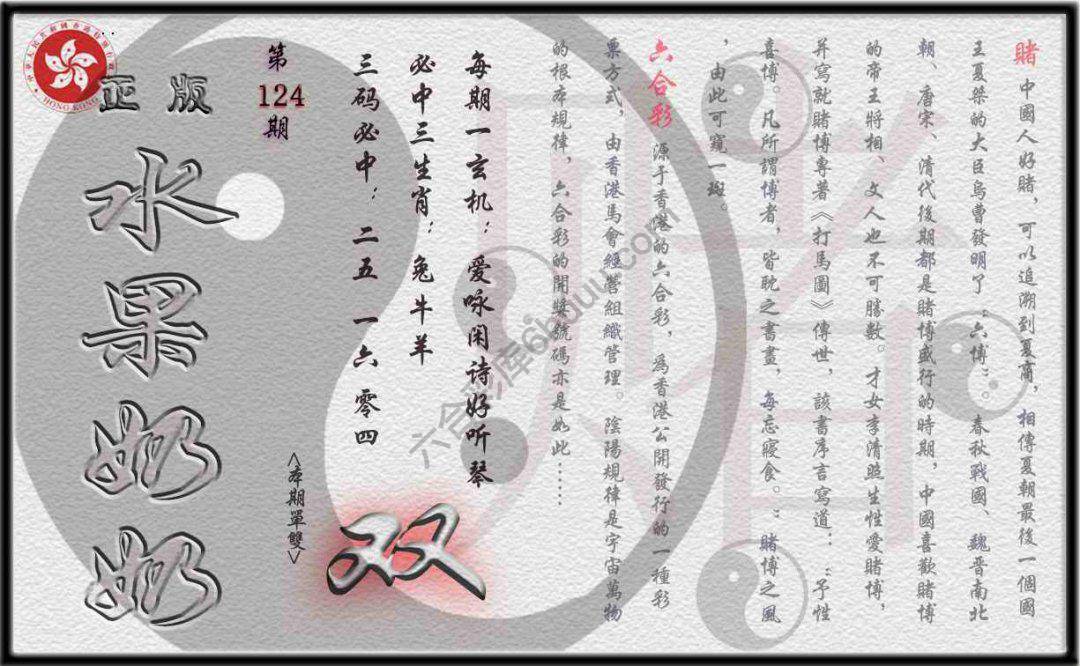 賭 中國人好賭，可以追溯到夏商，相傳夏朝最後一個國
王夏桀的大臣烏曹發明了“六博”。春秋戰國、魏晋南北
朝、唐宋、清代後期都是賭博盛行的時期，中國喜歡賭博
的帝王將相、文人也不可勝數。才女李清照生性愛賭博，
并寫就賭博專著《打馬圖》傳世，該書序言寫道：“予性
喜博。凡所謂博者，皆耽之書畫，每忘寢食。”賭博之風
，由此可窺一斑。
六合彩 源于香港的六合彩，爲香港公開發行的一種彩
票方式，由香港馬會經營組織管理。陰陽規律是宇宙萬物
的根本規律，六合彩的開獎號碼亦是如此……
每期一玄机：爱咏闲诗好听琴
必中三生肖：兔牛羊
三码必中：二五 一六 零四
双
<本期單雙>
第
124
期
正版
水果奶奶
HONG KONG
六合彩库6huuu.com